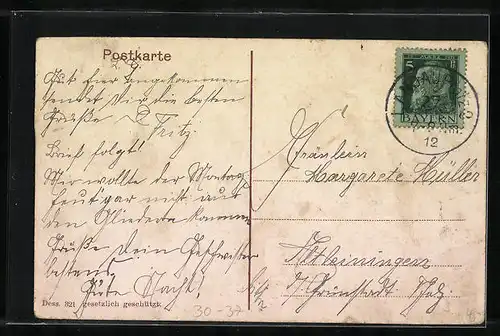 Postkarte
Gut hier angekommen
sendet dir die besten
Grüße Fritz.
Brief folgt!
Mir wollte der Montag
heut gar nicht aus
den Gliedern kommen
Grüße Dein Geschwister
bestens.
Gute Nacht!
Dess. 821 gesetzlich geschützt.
30-37
5
BAYERN
12
Fräulein
Margarete Müller
Altleiningen
b/ Grünstadt Pfalz.